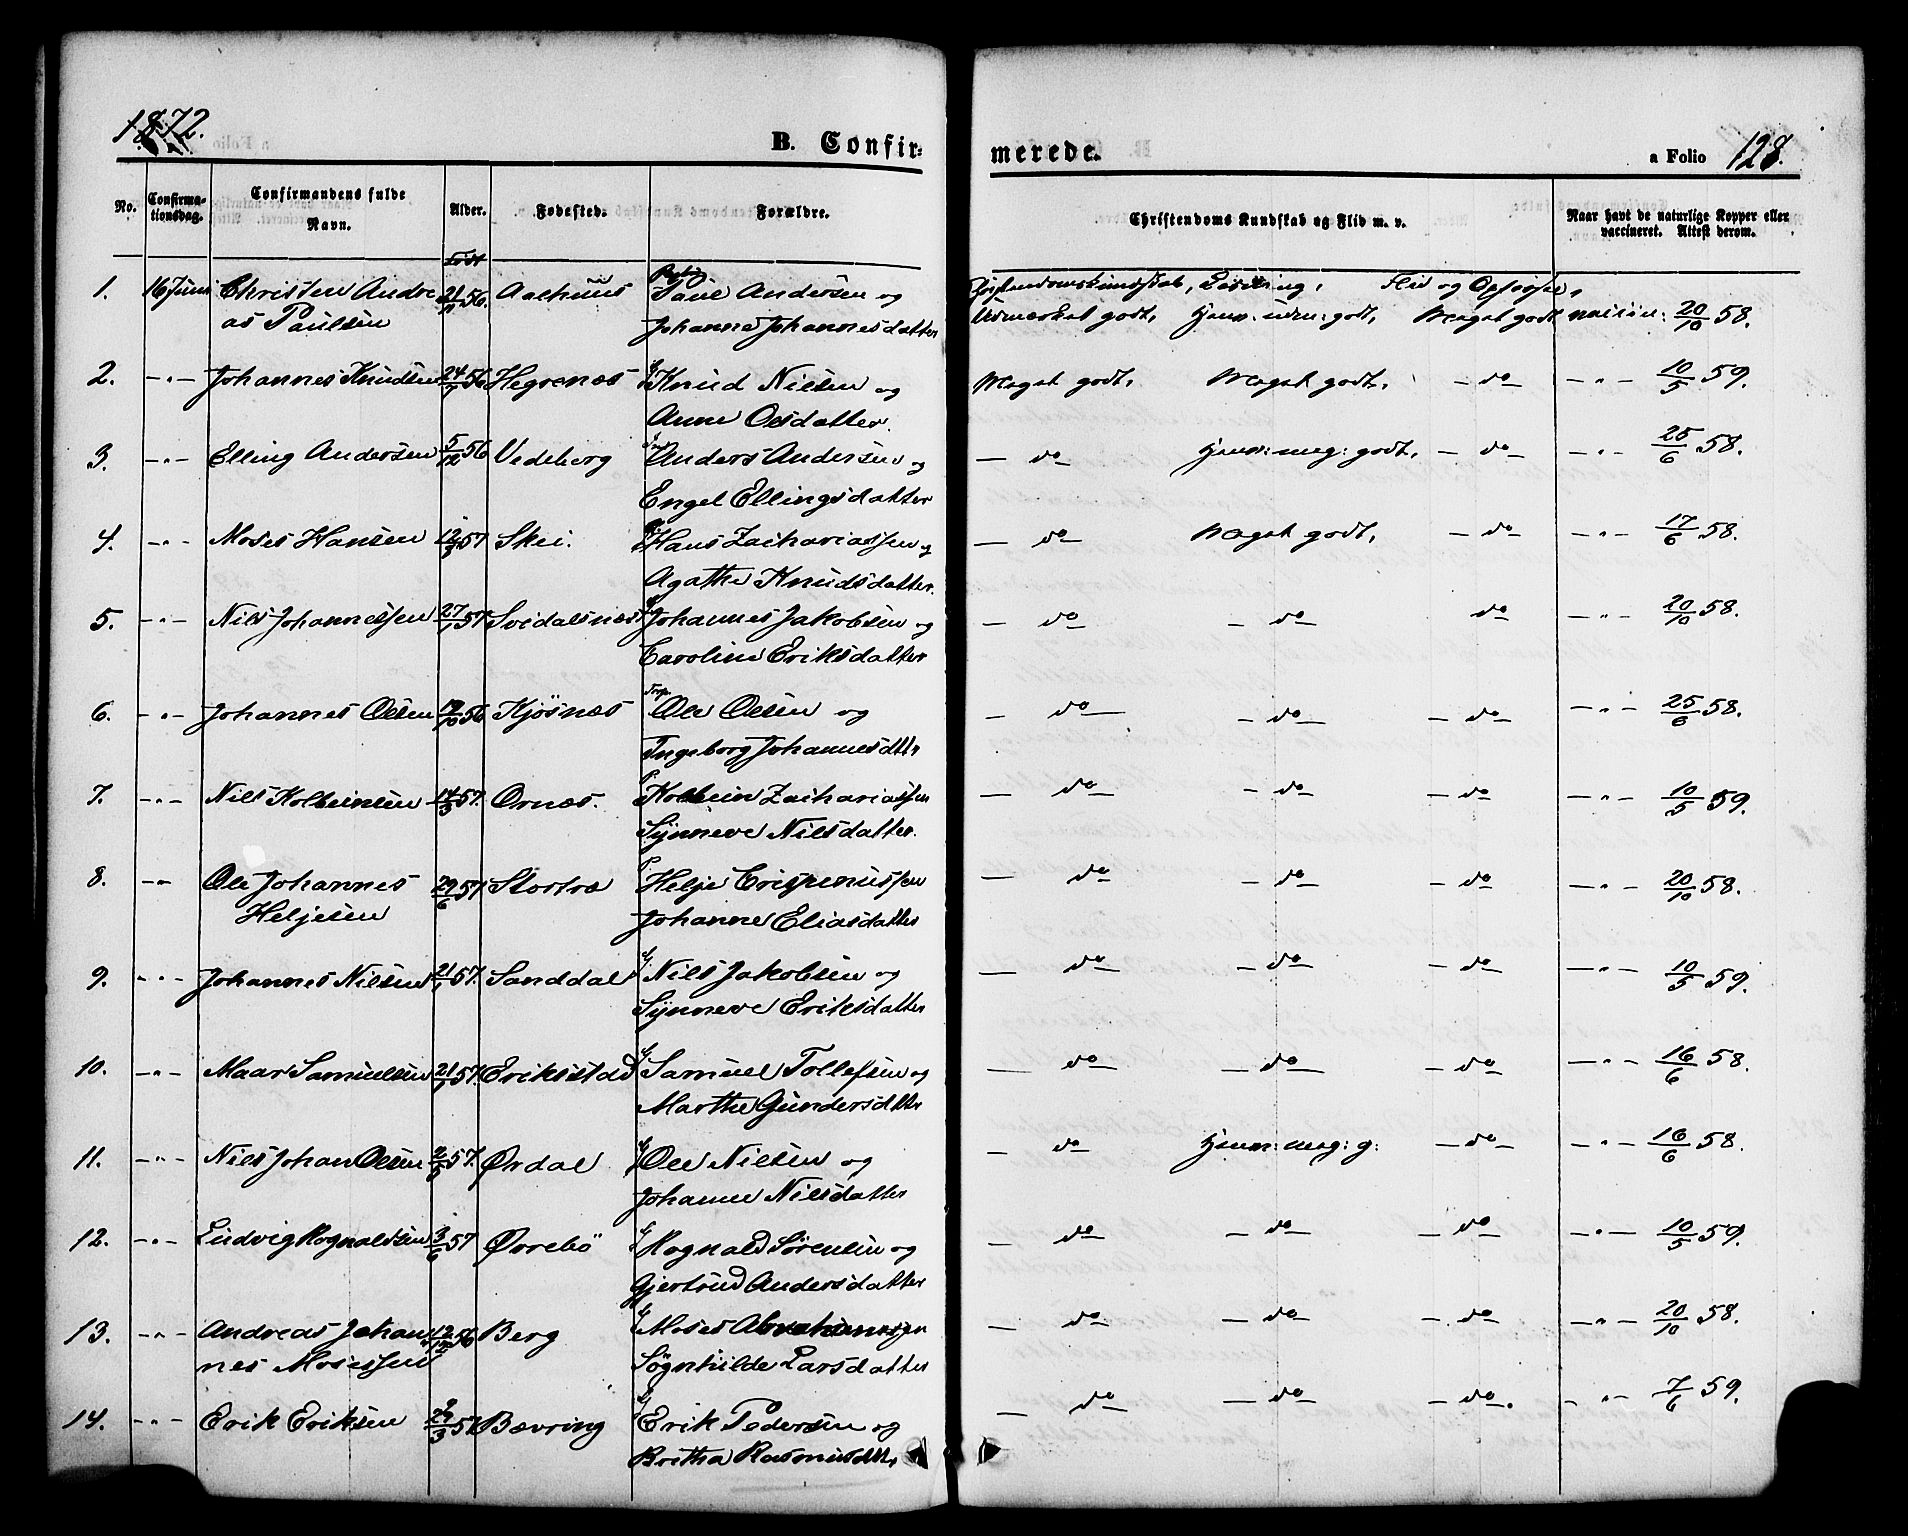 1872.
B. Confir-
merede.
a Folio 128.
No. Confirma-tionsdag. Confirmandens fulde Navn. Alder. Fødested. Forældre. Christendoms Kundskab og Flid m. v. Naar havt de naturlige Kopper eller vaccineret. Attest derom.
Født
1. 16 Juni Christen Andre 56. Aalhuus Paul Andersen og Christendomskundskab, Læsning, Flid og Opførsel,
as Paulsen Johanne Johannesdatter Udmærket godt, hjem: udm: godt, Meget godt vaccin: 20/10 58.
2. -"- Johannes Knudsen 24/7 56 Hegrenæs Knud Nilsen og Meget godt, Meget godt, - do - -"- 10/5 59.
Anne Olsdatter.
3. -"- Elling Andersen 5/12 56 Vedeberg Anders Andersen og - do - hjem: meg: godt, - do - -"- 25/6 58.
Engel Ellingsdatter
4. -"- Moses Hansen 12/3 57 Skei. Hans Zachariassen og - do - Meget godt, - do - -"- 17/6 58.
Agathe Knudsdatter.
5. -"- Nils Johannessen 27/1 57 Svidalsnæs Johannes Jakobsen og - do - - do - do -"- 20/10 58.
Caroline Eriksdatter
6. -"- Johannes Olsen 19/10 56 Kjøsnæs Ole Olsen og - do - - do - - do - -"- 25/6 58.
Ingeborg Johannesdttr
7. -"- Nils Kolbeinsen 14/3 57. Ornæs. Kolbein Zachariassen - do - - do - - do - -"- 10/5 59.
Synneve Nilsdatter.
8. -"- Ole Johannes 29/6 57 Stortræ Helje Crispinussen - do - - do - - do - -"- 20/10 58.
Heljesen Johanne Eliasdatter
9. -"- Johannes Nilsen 21/1 57. Sanddal Nils Jakobsen og - do - - do - - do - -"- 10/5 59.
Synneve Eriksdatter
10. -"- Maar Samuelsen 21/1 57. Eriksstad Samuel Tollefsen og - do - - do - - do - -"- 16/6 58.
Marthe Gundersdttr
11. -"- Nils Johan Olsen 2/5 57. Ørdal Ole Nilsen og - do - hjem: meg: g: - do - -"- 16/6 58.
Johanne Nilsdatter
12. -"- Ludvig Rognaldsen 3/6 57 Øvrebø Rognald Sørensen og - do - - do - - do - -"- 10/5 59.
Gjertrud Andersdatter
13. -"- Andreas Johan 12/12 56 Berg Moses Abrahamsen - do - - do - - do - -"- 20/10 58.
nes Mosessen Søgnhilde Larsdatter
14. -"- Erik Eriksen 29/3 57 Bævring Erik Pedersen og - do - - do - - do -. -"- 7/6 59.
Britha Rasmusdttr